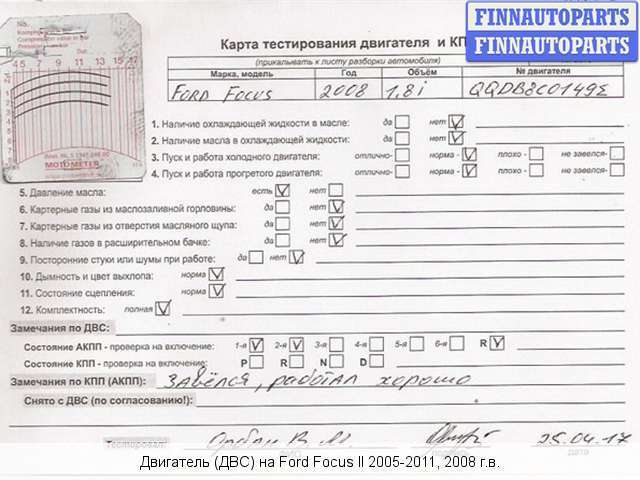 FINNAUTOPARTS
FINNAUTOPARTS
Карта тестирования двигателя и КП
(прикалывать к листу разборки автомобиля)
Марка, модель Год Объём № двигателя
FORD FOCUS 2008 1,8i QQDB8C01495
4 5 7 9 11 13 15 17
MOTOMETER
1. Наличие охлаждающей жидкости в масле: да нет
2. Наличие масла в охлаждающей жидкости: да нет
3. Пуск и работа холодного двигателя: отлично- норма - плохо - не завелся-
4. Пуск и работа прогретого двигателя: отлично- норма - плохо - не завелся-
5. Давление масла: есть нет
6. Картерные газы из маслозаливной горловины: да нет
7. Картерные газы из отверстия масляного щупа: да нет
8. Наличие газов в расширительном бачке: да нет
9. Посторонние стуки или шумы при работе: да нет
10. Дымность и цвет выхлопа: норма
11. Состояние сцепления: норма
12. Комплектность: полная
Замечания по ДВС:
Состояние АКПП - проверка на включение: 1-я 2-я 3-я 4-я 5-я 6-я R
Состояние КПП - проверка на включение: P R N D
Замечания по КПП (АКПП): завёлся, работал хорошо
Снято с ДВС (по согласованию!):
Тестировал: 25.04.17
дата
Двигатель (ДВС) на Ford Focus II 2005-2011, 2008 г.в.